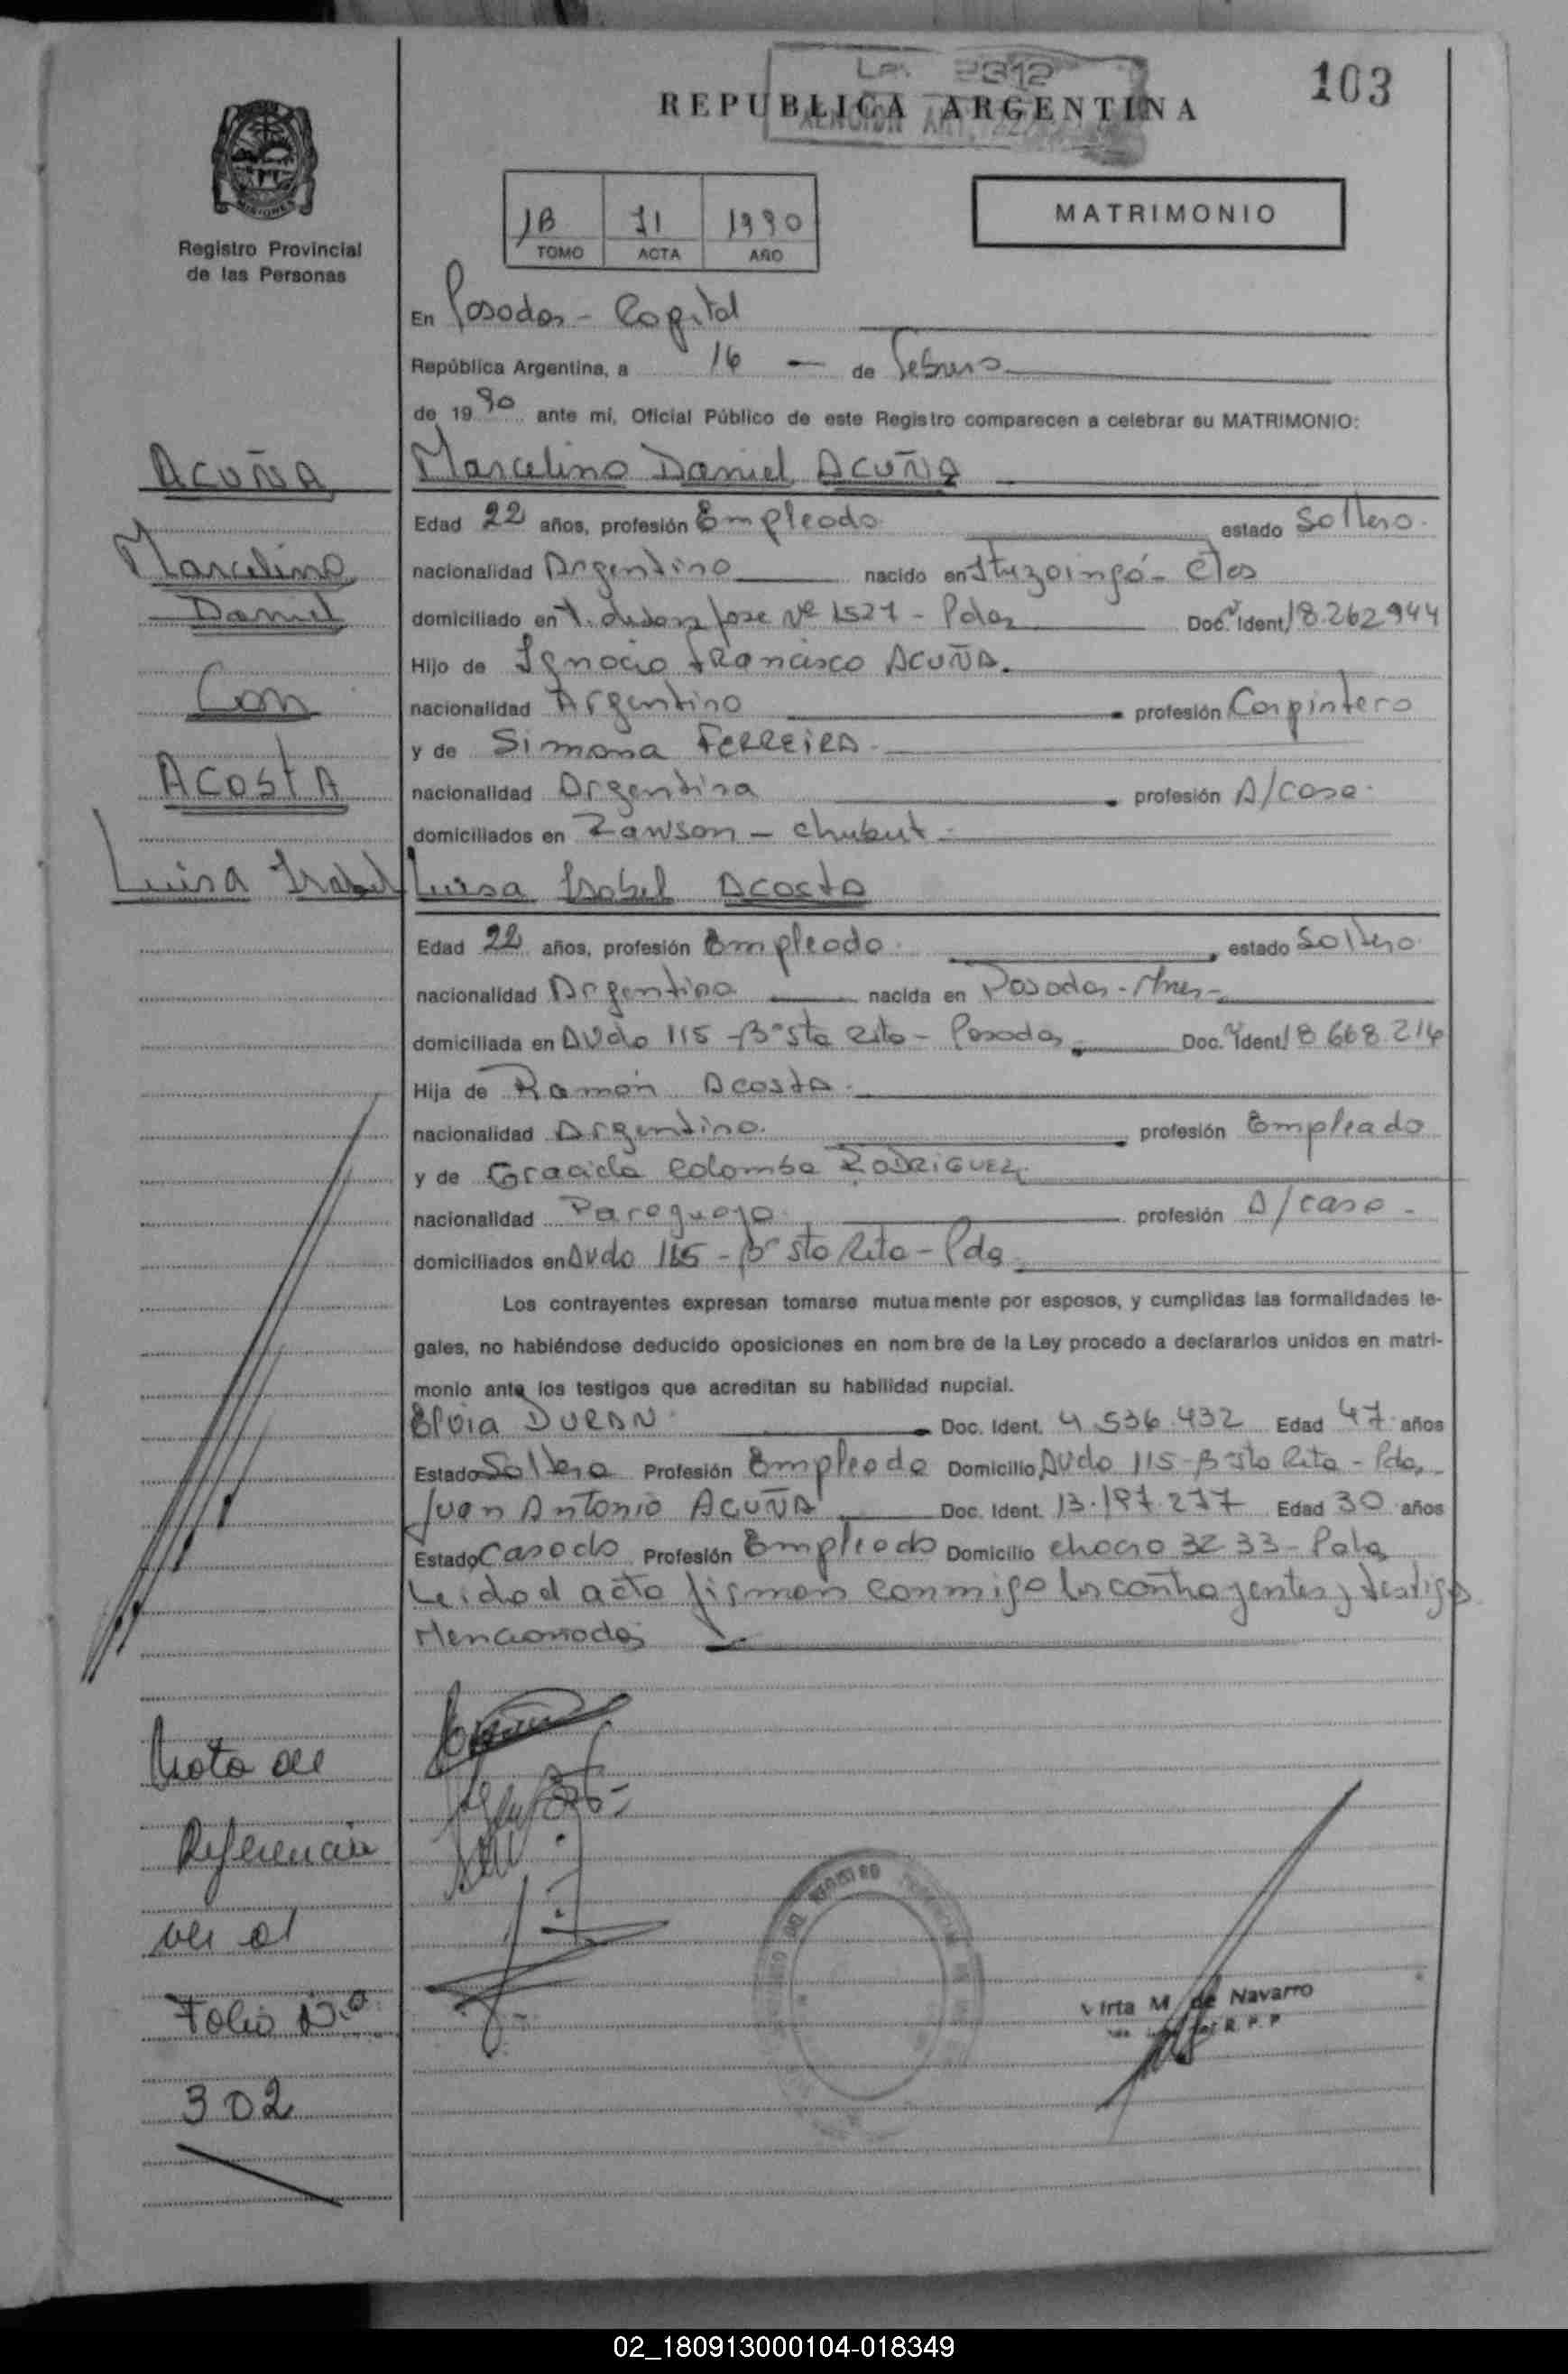 103
Ley 2312
REPUBLICA ARGENTINA
MATRIMONIO
1B 71 1990
TOMO ACTA AÑO
MISIONES
Registro Provincial
de las Personas
En Posadas - Capital
República Argentina, a 16 — de Febrero
de 1990 ante mí, Oficial Público de este Registro comparecen a celebrar su MATRIMONIO:
ACUÑA
Marcelino
Daniel
Con
ACOSTA
Luisa Isabel
Marcelino Daniel ACUÑA
Edad 22 años, profesión Empleado estado Soltero.
nacionalidad Argentino nacido en Ituzaingó - Ctes
domiciliado en Jose Nº 1527 - Pdas Doc. Ident. 18.262.944
Hijo de Ignacio Francisco ACUÑA.
nacionalidad Argentino profesión Carpintero
y de Simona FERREIRA.
nacionalidad Argentina profesión A/casa.
domiciliados en Rawson - Chubut.
Luisa Isabel ACOSTA
Edad 22 años, profesión Empleada estado Soltera
nacionalidad Argentina nacida en Posadas - Mnes -
domiciliada en Avda 115 - Bº Sta Rita - Posadas Doc. Ident. 18.668.214
Hija de Ramón Acosta.
nacionalidad Argentino. profesión Empleado
y de Graciela Colomba RODRIGUEZ.
nacionalidad Paraguaya. profesión A/casa -
domiciliados en Avda 115 - Bº Sta Rita - Pdas
Los contrayentes expresan tomarse mutuamente por esposos, y cumplidas las formalidades le-
gales, no habiéndose deducido oposiciones en nombre de la Ley procedo a declararlos unidos en matri-
monio ante los testigos que acreditan su habilidad nupcial.
Elvia DURAN Doc. Ident. 4.536.432 Edad 47 años
Estado Soltera Profesión Empleada Domicilio Avda 115 - Bº Sta Rita - Pdas -
Juan Antonio ACUÑA Doc. Ident. 13.197.277 Edad 30 años
Estado Casado Profesión Empleado Domicilio Chaco 3233 - Pdas
Leida el acta firman conmigo los contrayentes y testigos
Mencionados
Nota de
Referencia
ver al
Folio Nº
302
Mirta M. de Navarro
R. P. P
02_180913000104-018349